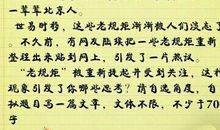 一辈辈北京人。
世易时移，这些老规矩渐渐被人们淡忘了
不久前，有网友陆续把一些老规矩重新
整理出来贴到网上，引发了一片热议。
"老规矩"被重新提起并受到关注，这种
现象引发了你哪些思考？请自选角度，自
拟题目写一篇文章，文体不限，不少于70
字